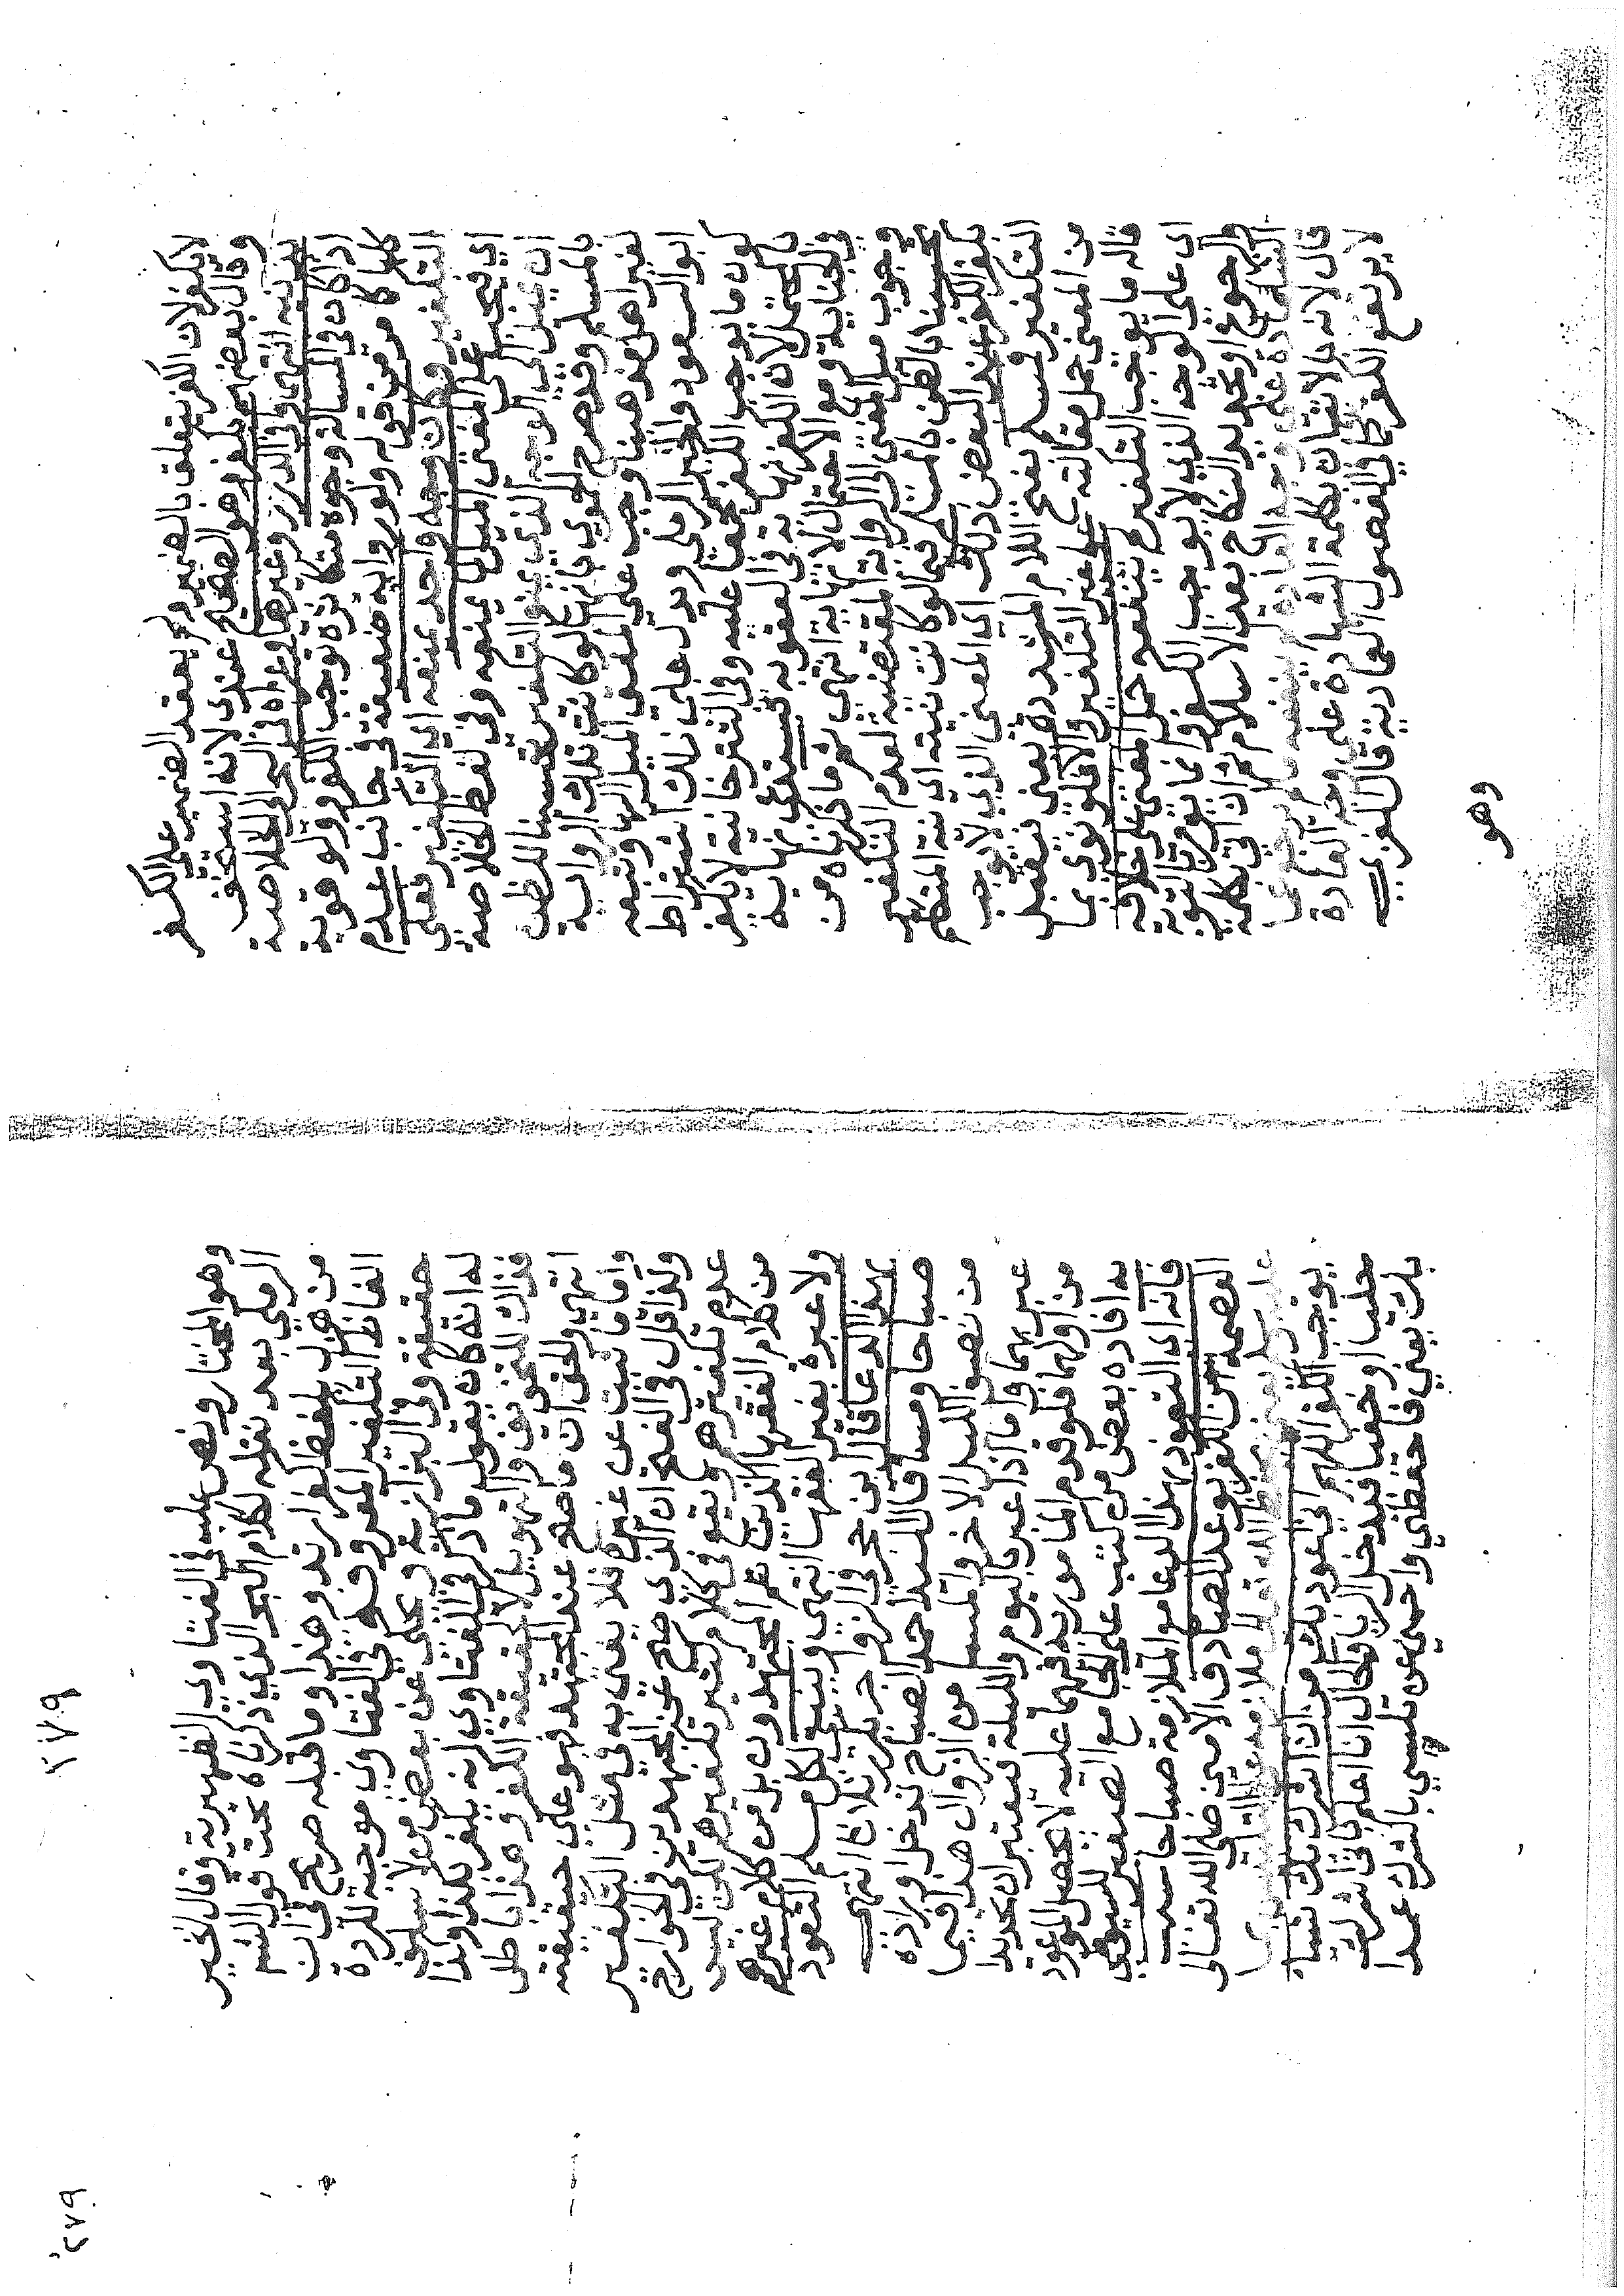 لا يكفر لان الكفر يتعلق بالضمير ولم يعقد الضمير على الكفر
وقال بعضهم يكفر وهو الصحيح عندي لانه استخف
بدينه انتهى وفي الدرر وغيرها وعزاه في البحر الى الخلاصة
اذا كان في المسألة وجوه متكاثرة توجب الكفر ولو قوية
كلها كما مر من قوله ولو رواية ضعيفة في جانب عدم
التكفير وكان وجه واحد يمنعه اي التكفير فعلى
اي فيجب على المفتي الميل لما يمنعه وفي لفظ الخلاصة
ان يميل الى الوجه الذي يمنع التكفير تحسينا للظن
بالمسلم وقد صرح الحموي بانها لو كانت تلك الرواية
لغير اهل مذهبنا وجب على المفتي الميل اليها وتبعه
ابو السعود والخير الرملي ويدل على ذلك اشتراط
كون ما يوجب الكفر مجمعا عليه وفي التترخانية لا يكفر
بالمحتمل لان الكفر نهاية في العقوبة فيستدعي نهاية
في الجناية ومع الاحتمال لا نهاية انتهى ثم ما ذكرناه من
وجوب ميل المفتي الى الرواية المقتضية لعدم التكفير
تحسينا بالظن بالمسلم فيما لو كانت نيته اي نية المتكلم
بلفظ الكفر عند البعض ذلك اي المعنى الذي لا يوجب
التكفير فمسلم بفتح اللام المشددة يعني فيقبل
من المفتي حمل مقالته على غير التكفير والا فلو نوى بما
قاله ما يوجب التكفير لم ينفعه حمل المفتي على خلافه
اي على الوجه الذي لا يوجب الكفر وانما يؤمر بالتوبة
والرجوع وتجديد النكاح بعد الاسلام ثم ان اتى بكلمة
الشهادة على وجه العادة لم ينفعه ما لم يرجع عما
قال لانه بالاتيان بكلمة الشهادة على وجه العادة
لا يرتفع الكفر كما في الفصول العمادية قال الغزي
وهو
وهو المختار ونص عليه في الفتاوى الظهيرية وقال الخير
الرملي بعد نقله لكلام البحر الذي ذكرناه تحت قول الشم
من هزل بلفظ كفر ارتد وهذا وما قبله صريح في ان
الفاظ التكفير المعروفة في الفتاوى موجبة للردة
حقيقة وفي البزازية ويحكى عن بعض من لا سلف
له انه كان يقول ما ذكر في الفتاوى انه يكفر بكذا وكذا
فذاك للتخويف والتهويل لا لحقيقة الكفر وهذا باطل
انتهى والحق ان ما صح عند المجتهد فهو على حقيقته
واما ما ثبت عن غيره فلا يفتى به في مثل التكفير
ولذا قال في الفتح ان الذي صح عن المجتهدين في الخوارج
عدم تكفيرهم ويقع في كلام كثير تكفيرهم لكن ليس
من كلام الفقهاء الذين هم المجتهدون بل من كلام غيرهم
ولا عبرة بغير الفقهاء انتهى وينبغي لكل مسلم التعوذ
بهذا الدعا قال ابن حجر في الزواجر يكرر ثلاثا انتهى
صباحا ومسا قال السيد احمد الصباح تدخل اوراده
من نصف الليل الاخير والمسا من الزوال هذا فيما
عبر بهما واما اذا عبر باليوم والليلة فيعتبران تحديدا
من اولهما فلو قدم المأمور به فيهما عليه لا يحصل الموعود
به افاده بعض من كتب على الجامع الصغير للسيوطي
فانه اي التعوذ بهذا الدعا مع الملازمة صباحا ومسا
العصمة من الكفر بوعد الصادق الامين صلى الله تعالى
عليه وسلم
اللهم اني اعوذ بك من ان اشرك بك شيأ
يوجب الكفر
جليا او خفيا فيدخل الريا والحال انا اعلم بانه شرك
بك يعني فاحفظني واحمني عن تلبسي بالشرك عمدا
٢٧٩
٢٧٩